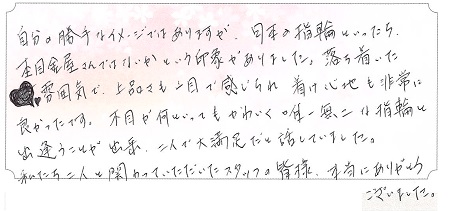 自分の勝手なイメージではありますが、日本の指輪といったら、
杢目金屋さんではないかという印象がありました。落ち着いた
雰囲気で、上品さも一目で感じられ 着け心地も非常に
良かったです。木目が何といってもかわいく唯一無二な指輪と
出逢うことが出来、二人で大満足だと話していました。
私たち二人と関わっていただいたスタッフの皆様、本当にありがとう
ございました。